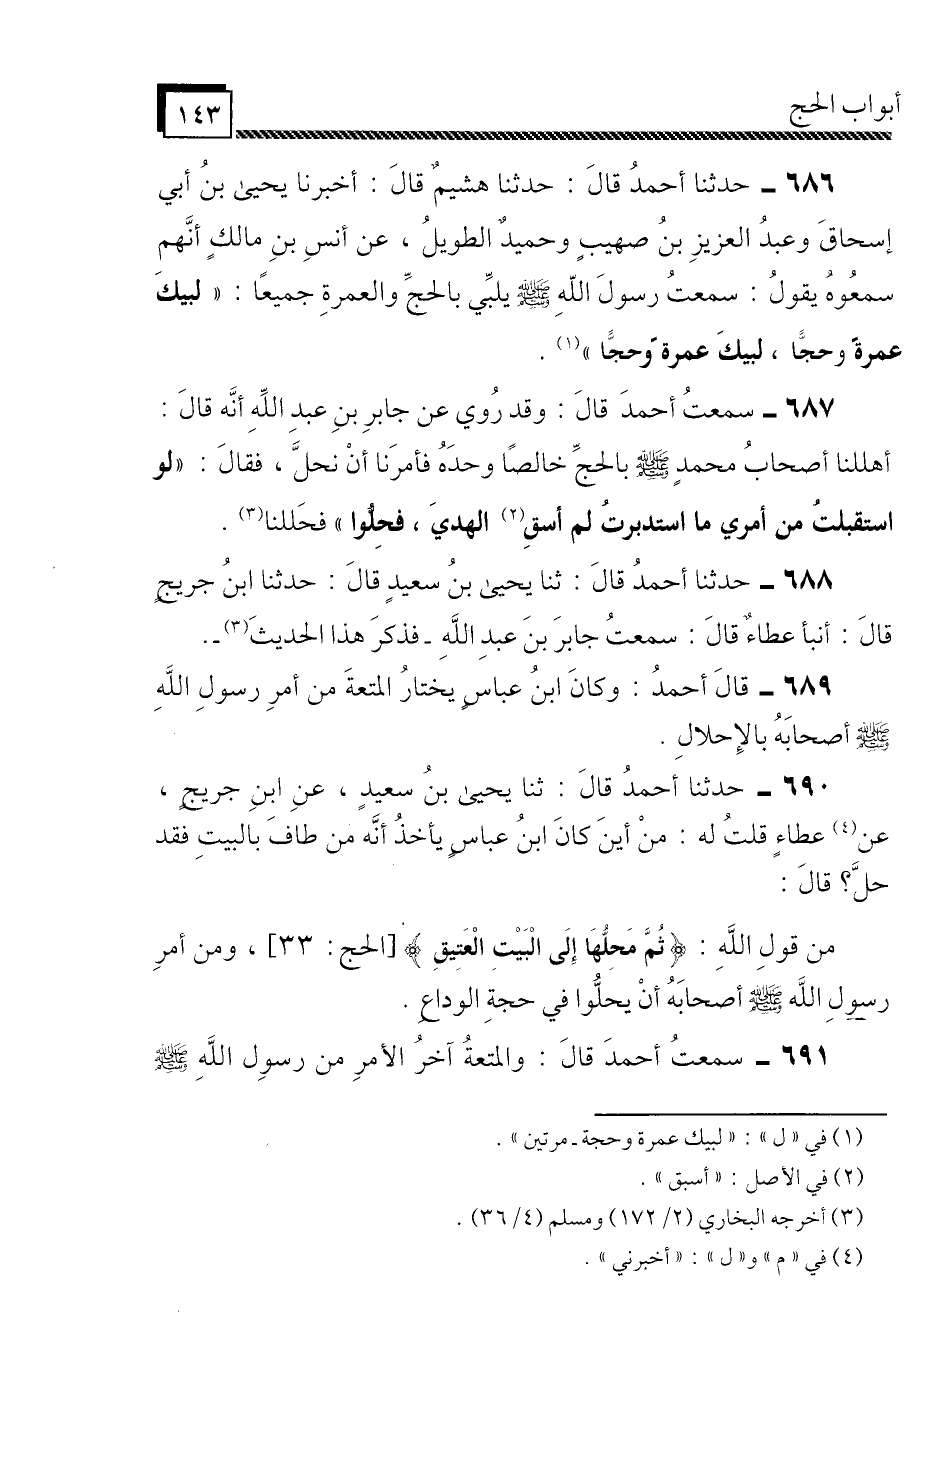 أبواب الحج
١٤٣
٦٨٦ ـ حدثنا أحمدُ قالَ : حدثنا هشيمٌ قالَ : أخبرنا يحيىٰ بنُ أبي
إسحاقَ وعبدُ العزيزِ بنُ صهيبٍ وحميدٌ الطويلُ ، عن أنسِ بنِ مالكٍ أنَّهم
سمعُوهُ يقولُ : سمعتُ رسولَ اللَّهِ ﷺ يلبِّي بالحجِّ والعمرةِ جميعاً : « لبيكَ
عمرةً وحجًّا ، لبيكَ عمرةً وحجًّا »(١) .
٦٨٧ ـ سمعتُ أحمدَ قالَ : وقد رُوي عن جابرِ بنِ عبدِ اللَّهِ أنَّه قالَ :
أهللنا أصحابُ محمدٍ ﷺ بالحجِّ خالصًا وحدَهُ فأمرَنا أنْ نحلَّ ، فقالَ : «لو
استقبلتُ من أمري ما استدبرتُ لم أسقِ(٢) الهديَ ، فحِلُّوا » فحَللنا(٣) .
٦٨٨ ـ حدثنا أحمدُ قالَ : ثنا يحيىٰ بنُ سعيدٍ قالَ : حدثنا ابنُ جريجٍ
قالَ : أنبأ عطاءٌ قالَ : سمعتُ جابرَ بنَ عبدِ اللَّهِ ـ فذكرَ هذا الحديثَ(٣)ـ.
٦٨٩ ـ قالَ أحمدُ : وكانَ ابنُ عباسٍ يختارُ المتعةَ من أمرِ رسولِ اللَّهِ
ﷺ أصحابَهُ بالإحلالِ .
٦٩٠ ـ حدثنا أحمدُ قالَ : ثنا يحيىٰ بنُ سعيدٍ ، عنِ ابنِ جريجٍ ،
عن(٤) عطاءٍ قلتُ له : منْ أينَ كانَ ابنُ عباسٍ يأخذُ أنَّه من طافَ بالبيتِ فقد
حلَّ؟ قالَ :
من قولِ اللَّهِ : ﴿ ثُمَّ مَحِلُّهَا إِلَى الْبَيْتِ الْعَتِيقِ ﴾ [الحج: ٣٣] ، ومن أمرِ
رسولِ اللَّه ﷺ أصحابَهُ أنْ يحلُّوا في حجةِ الوداعِ .
٦٩١ ـ سمعتُ أحمدَ قالَ : والمتعةُ آخرُ الأمرِ من رسولِ اللَّهِ ﷺ
(١) في « ل » : « لبيك عمرة وحجة ـ مرتين » .
(٢) في الأصل : « أسبق » .
(٣) أخرجه البخاري (٢/ ١٧٢) ومسلم (٤/ ٣٦) .
(٤) في « م » و« ل » : « أخبرني » .